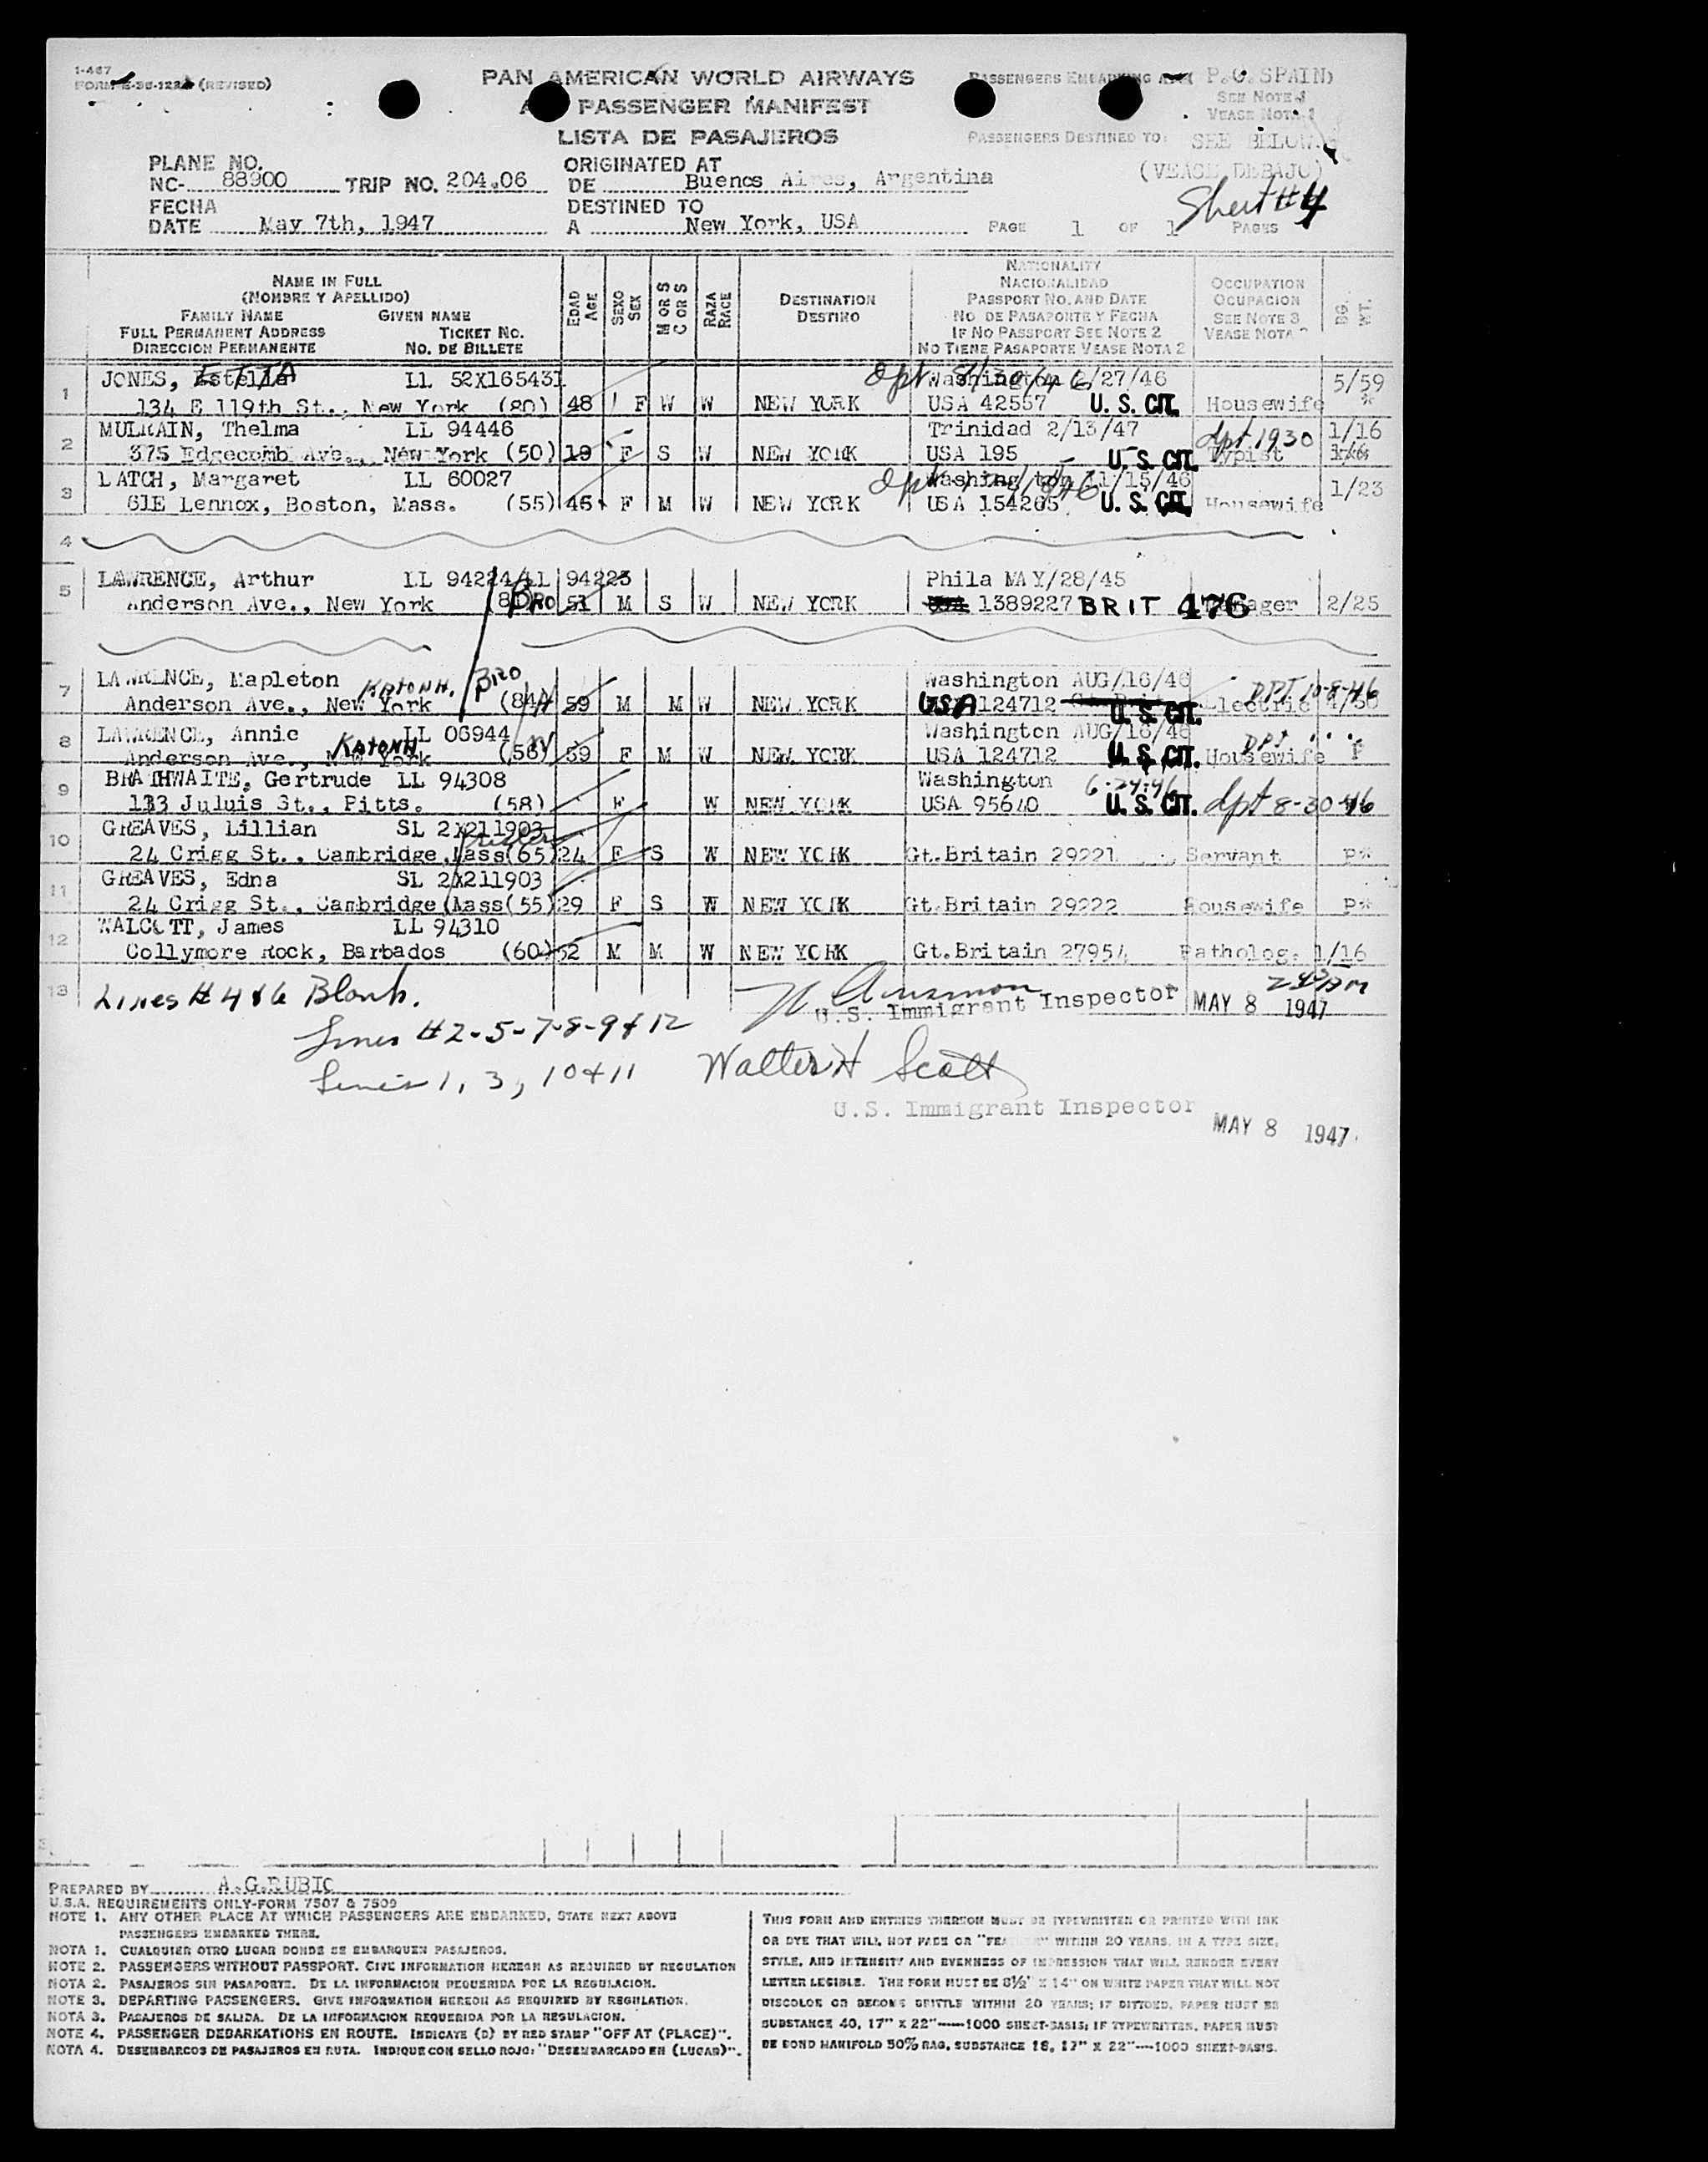 1-467
(REVISED)
PAN AMERICAN WORLD AIRWAYS
PASSENGER MANIFEST
LISTA DE PASAJEROS
PASSENGERS EMBARKING AT P.O. SPAIN)
SEE NOTE 1
VEASE NOTA 1
PASSENGERS DESTINED TO: SEE BELOW
(VEASE DEBAJO)
Sheet #4
PLANE NO.
NC- 88900 TRIP NO. 204.06
ORIGINATED AT
DE Buenos Aires, Argentina
FECHA
DATE May 7th, 1947
DESTINED TO
A New York, USA
PAGE 1 OF 1 PAGES
NAME IN FULL
(NOMBRE Y APELLIDO)
FAMILY NAME GIVEN NAME
FULL PERMANENT ADDRESS TICKET NO.
DIRECCION PERMANENTE NO. DE BILLETE
EDAD AGE
SEXO SEX
M OR S C OR S
RAZA RACE
DESTINATION DESTINO
NATIONALITY
NACIONALIDAD
PASSPORT NO. AND DATE
NO. DE PASAPORTE Y FECHA
IF NO PASSPORT SEE NOTE 2
NO TIENE PASAPORTE VEASE NOTA 2
OCCUPATION
OCUPACION
SEE NOTE 3
VEASE NOTA
BG. WT.
1 JONES, Estella ETTA LL 52X165431 Dpt. 8/30/46 Washington /27/46 5/59
134 E 119th St., New York (80) 48 F W W NEW YORK USA 42557 U. S. CIT. Housewife
2 MULRAIN, Thelma LL 94446 Trinidad 2/13/47 dpt 1930 1/16
375 Edgecomb Ave., New York (50) 19 F S W NEW YORK USA 195 U. S. CIT. Typist
3 LATCH, Margaret LL 60027 Dpt Washington 11/15/46 1/23
61E Lennox, Boston, Mass. (55) 46 F M W NEW YORK USA 154265 U. S. CIT. Housewife
4
5 LAWRENCE, Arthur LL 94224/LL 94223 Phila MAY/28/45
Anderson Ave., New York BRO 51 M S W NEW YORK 1389227 BRIT 476 2/25
7 LAWRENCE, Mapleton KATONH. BRO Washington AUG/16/46 DPT. 10-8-46
Anderson Ave., New York (84) 59 M M W NEW YORK USA 124712 U. S. CIT. Electric
8 LAWRENCE, Annie KATONH LL 06944 Washington AUG/16/46 DPT
Anderson Ave., New York (56) 59 F M W NEW YORK USA 124712 U. S. CIT. Housewife F
9 BRATHWAITE, Gertrude LL 94308 Washington 6-24-46
133 Juluis St., Pitts. (58) F W NEW YORK USA 95640 U. S. CIT. dpt 8-30-46
10 GREAVES, Lillian SL 2X211903
24 Crigg St., Cambridge, Mass(65) 24 F S W NEW YORK Gt. Britain 29221 Servant P*
11 GREAVES, Edna SL 2X211903
24 Crigg St., Cambridge Mass(55) 29 F S W NEW YORK Gt. Britain 29222 Housewife P*
12 WALCOTT, James LL 94310
Collymore Rock, Barbados (60) 52 M M W NEW YORK Gt. Britain 27954 Patholog. 1/16
13 Lines #4 & 6 Blank.
U.S. Immigrant Inspector MAY 8 1947
Lines #2-5-7-8-9 & 12
Lines 1, 3, 10 & 11 Walter H Scott
U.S. Immigrant Inspector MAY 8 1947
PREPARED BY A.G.RUBIO
U.S.A. REQUIREMENTS ONLY-FORM 7507 & 7509
NOTE 1. ANY OTHER PLACE AT WHICH PASSENGERS ARE EMBARKED, STATE NEXT ABOVE
PASSENGERS EMBARKED THERE.
NOTA 1. CUALQUIER OTRO LUGAR DONDE SE EMBARQUEN PASAJEROS.
NOTE 2. PASSENGERS WITHOUT PASSPORT. GIVE INFORMATION HEREON AS REQUIRED BY REGULATION
NOTA 2. PASAJEROS SIN PASAPORTE. DE LA INFORMACION REQUERIDA POR LA REGULACION.
NOTE 3. DEPARTING PASSENGERS. GIVE INFORMATION HEREON AS REQUIRED BY REGULATION.
NOTA 3. PASAJEROS DE SALIDA. DE LA INFORMACION REQUERIDA POR LA REGULACION.
NOTE 4. PASSENGER DEBARKATIONS EN ROUTE. INDICATE (D) BY RED STAMP "OFF AT (PLACE)".
NOTA 4. DESEMBARCOS DE PASAJEROS EN RUTA. INDIQUE CON SELLO ROJO: "DESEMBARCADO EN (LUGAR)".
THIS FORM AND ENTRIES THEREON MUST BE TYPEWRITTEN OR PRINTED WITH INK
OR DYE THAT WILL NOT FADE OR "FEATHER" WITHIN 20 YEARS, IN A TYPE SIZE,
STYLE, AND INTENSITY AND EVENNESS OF IMPRESSION THAT WILL RENDER EVERY
LETTER LEGIBLE. THE FORM MUST BE 8½" X 14" ON WHITE PAPER THAT WILL NOT
DISCOLOR OR BECOME BRITTLE WITHIN 20 YEARS; IF DITTOED, PAPER MUST BE
SUBSTANCE 40, 17" X 22"----1000 SHEET-BASIS; IF TYPEWRITTEN, PAPER MUST
BE BOND MANIFOLD 50% RAG, SUBSTANCE 18, 17" X 22"----1000 SHEET-BASIS.